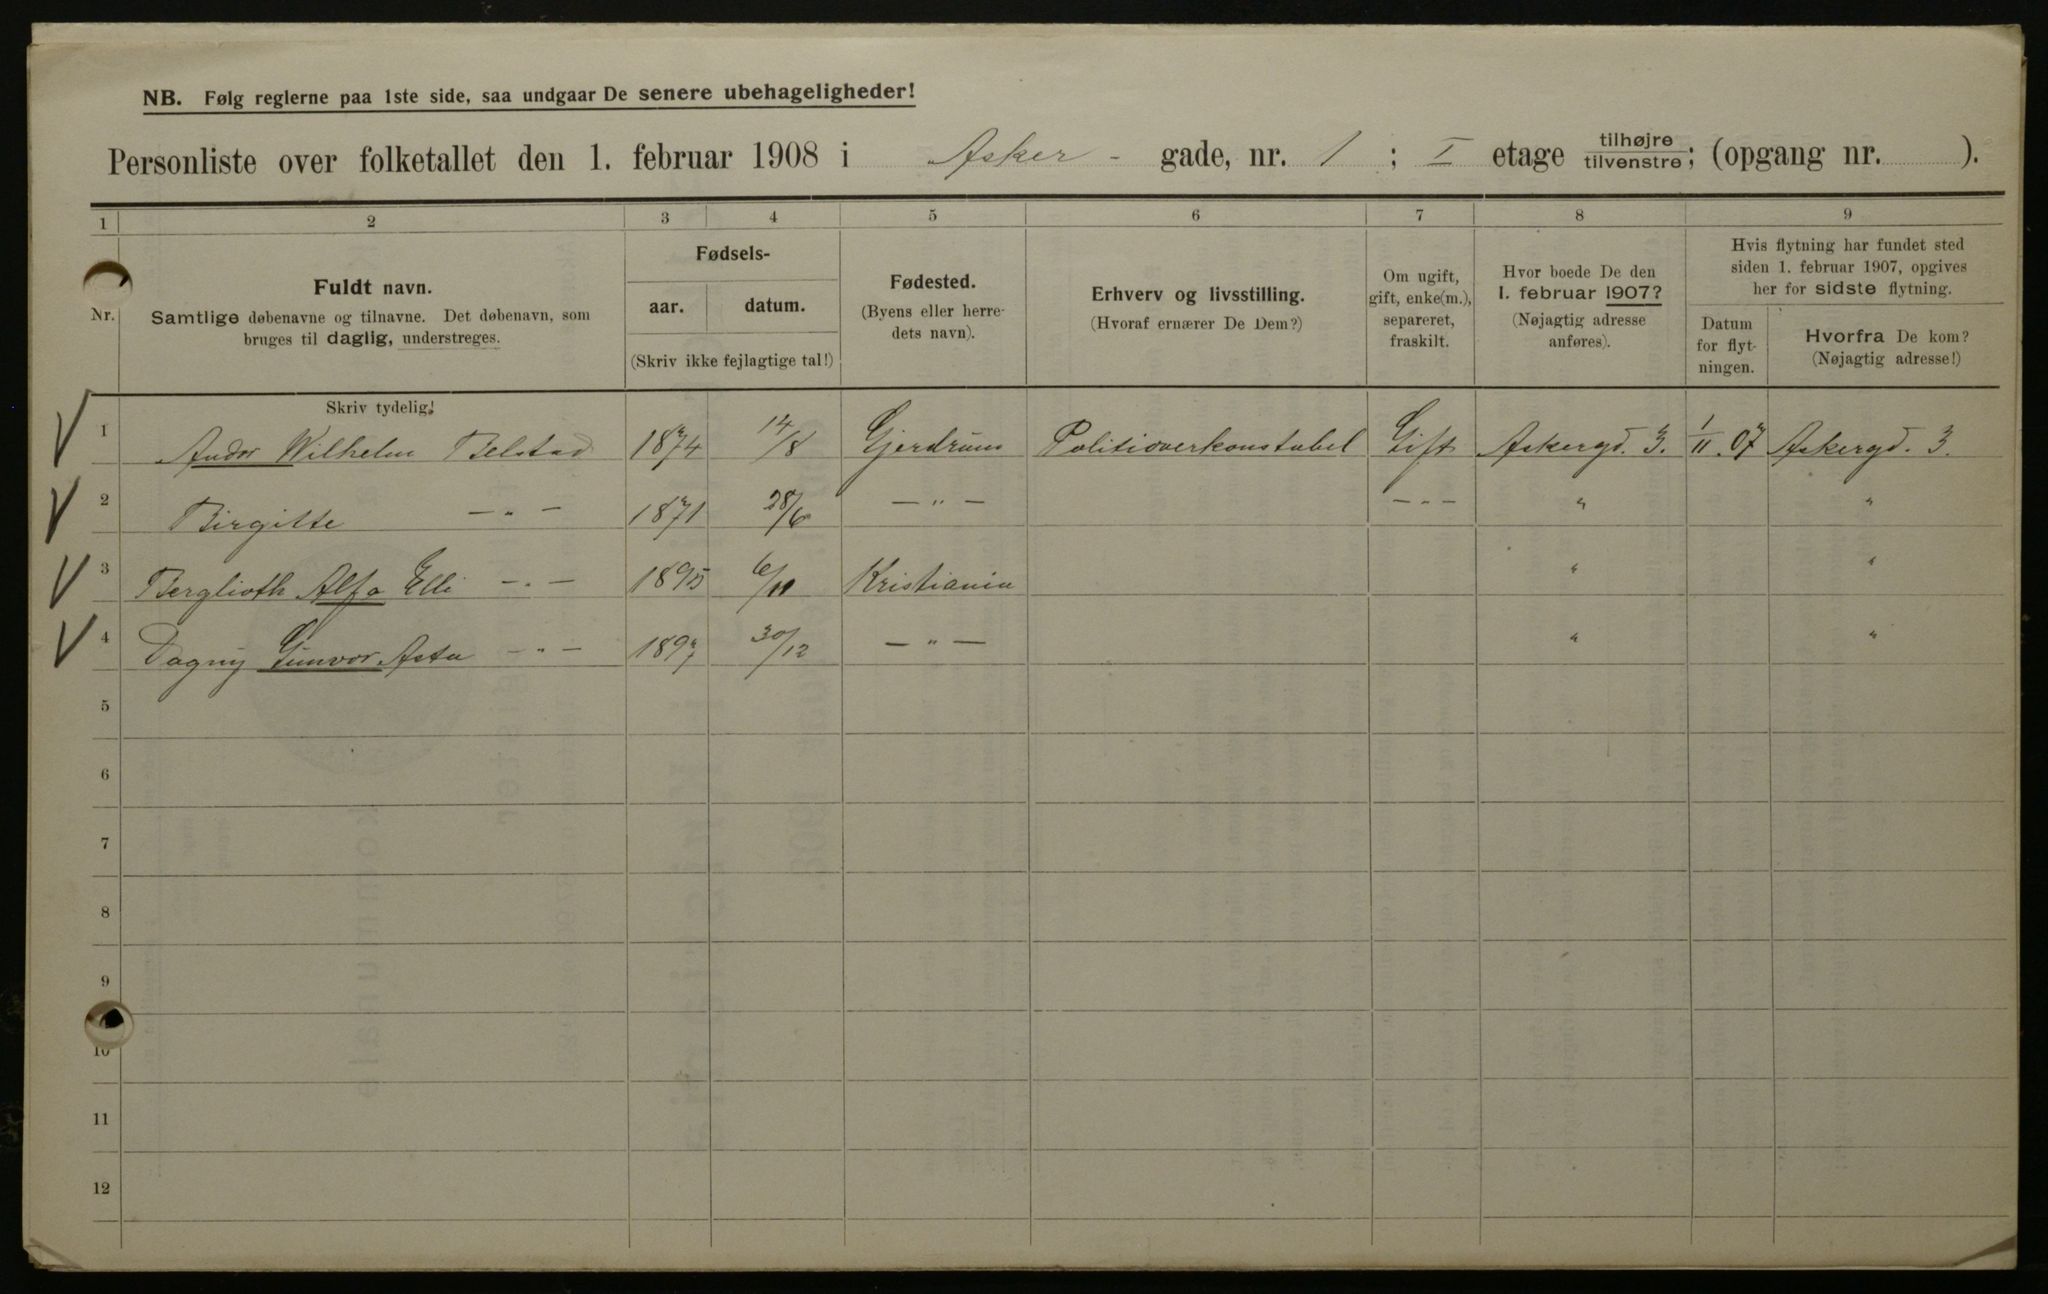 NB. Følg reglerne paa 1ste side, saa undgaar De senere ubehageligheder!
Personliste over folketallet den 1. februar 1908 i Asker - gade, nr. 1 ; I etage tilhøjre tilvenstre; (opgang nr. ).
1 2 3 4 5 6 7 8 9
Nr.
Fuldt navn.
Samtlige døbenavne og tilnavne. Det døbenavn, som
bruges til daglig, understreges.
Skriv tydelig!
Fødsels-
aar. datum.
(Skriv ikke fejlagtige tal!)
Fødested.
(Byens eller herre-
dets navn).
Erhverv og livsstilling.
(Hvoraf ernærer De Dem?)
Om ugift,
gift, enke(m.),
separeret,
fraskilt.
Hvor boede De den
1. februar 1907?
(Nøjagtig adresse
anføres).
Hvis flytning har fundet sted
siden 1. februar 1907, opgives
her for sidste flytning.
Datum
for flyt-
ningen.
Hvorfra De kom?
(Nøjagtig adresse!)
1 Andor Wilhelm Belstad 1874 14/8 Gjerdrum Politioverkonstabel Gift Askergd. 3. 1/11 . 07 Askergd. 3.
2 Birgitte — " — 1871 28/6 — " — — " — " "
3 Berglioth Alfa Elli — " — 1895 6/11 Kristiania " "
4 Dagny Gunvor Asta — " — 1897 30/12 — " — " "
5
6
7
8
9
10
11
12